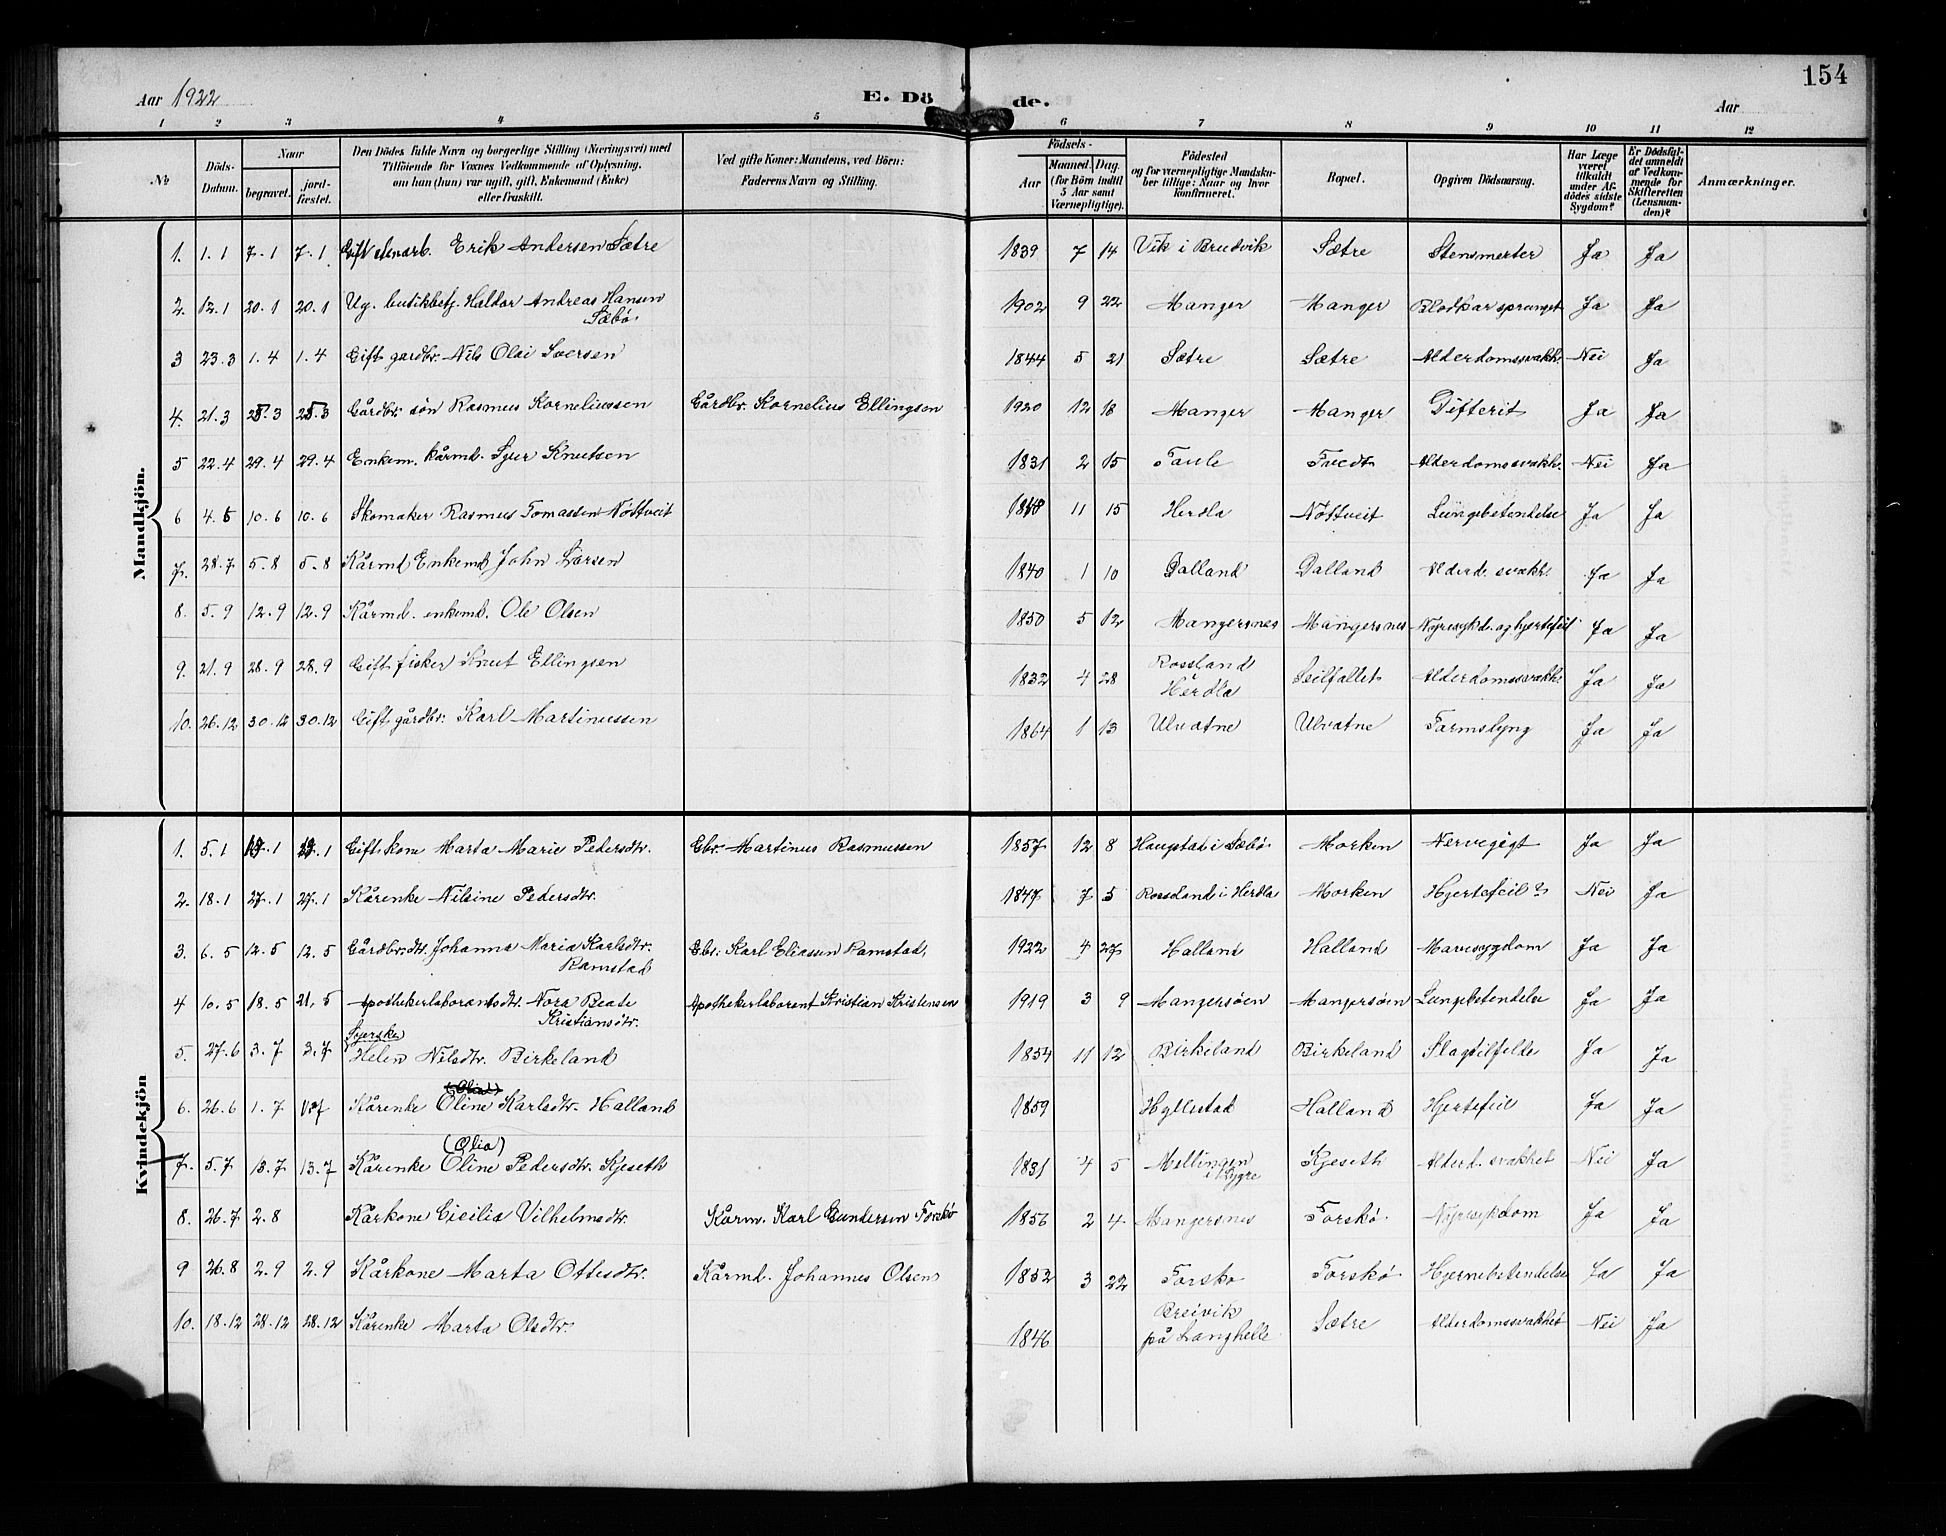 154
Aar 1922 E. Dö de. Aar
1 2 3 4 5 6 7 8 9 10 11 12
No
Döds-Datum.
Naar
begravet.
jordfæstet.
Den Dödes fulde Navn og borgerlige Stilling (Næringsvei) med
Tilföiende for Voxnes Vedkommende af Oplysning,
om han (hun) var ugift, gift, Enkemand (Enke)
eller fraskilt.
Ved gifte Koner: Mandens, ved Börn:
Faderens Navn og Stilling.
Födsels-
Aar
Maaned. Dag.
(for Börn indtil
5 Aar samt
Værnepligtige).
Födested
og for værnepligtige Mandsku-
ber tillige: Naar og hvor
konfirmeret.
Bopæl.
Opgiven Dödsaarsag.
Har Læge
været
tilkaldt
under Af-
dödes sidste
Sygdom?
Er Dödsfal-
det anmeldt
af Vedkom-
mende for
Skifteretten
(Lensman-
den)?
Anmærkninger.
Mandkjön.
1. 1.1 7.1 7.1 Gift Erik Andersen Sætre 1839 7 14 Vik i Brudvik Sætre Stensmerter Ja Ja
2. 12.1 20.1 20.1 Ug. butikbetj. Haldor Andreas Hansen 1902 9 22 Manger Manger Blodkar sprunget Ja Ja
Sæbö.
3 23.3 1.4 1.4 Gift gardbr. Nils Olai Iversen 1844 5 21 Sætre Sætre Alderdomssvakh. Nei Ja
4. 21.3 25.3 25.3 Gårdbr. sön Rasmus Korneliussen Gårdbr. Kornelius Ellingsen 1920 12 18 Manger Manger Difterit Ja Ja
5 22.4 29.4 29.4 Enkem. kårmd. Sjur Knutsen 1831 2 15 Toule Tvedt Alderdomssvakh. Nei Ja
6 4.5 10.6 10.6 Skomaker Rasmus Tomassen Nöttveit 1848 11 15 Herdla Nöttveit Lungebetendelse Ja Ja
7. 28.7 5.8 5.8 Kårmd Enkemd John Larsen 1840 1 10 Dalland Dalland Alderd. svakh. Ja Ja
8. 5.9 12.9 12.9 Kårmd. enkemd. Ole Olsen 1850 5 12 Mangersnes Mangersnes Nyresykd. og hjertefeil Ja Ja
9. 21.9 28.9 28.9 Gift fisker Knut Ellingsen 1832 4 28 Rossland Herdla Seilfaltet Alderdomssvakh. Ja Ja
10. 26.12 30.12 30.12 Gift gårdbr. Karl Martinussen 1864 1 13 Ulvatne Ulvatne Tarmslyng Ja Ja
Kvindekjön
1. 5.1 .1 .1 Gift kone Marta Marie Pedersdtr. Gbr. Martinus Rasmussen 1857 12 8 Haugstad i Sæbö Morken Nervegigt Ja Ja
2. 18.1 27.1 27.1 Kårenke Nilsine Pedersdtr. 1847 7 5 Rossland i Herdla Morken Hjertefeil? Nei Ja
3. 6.5 12.5 12.5 Gårdbr.dtr. Johanna Maria Karlsdtr. Gbr. Karl Eliassen Ramstad, 1922 4 27 Halland Halland Mavesygdom Ja Ja
Ramstad
4 10.5 18.5 21.5 Apothekerlaborantsdtr. Nora Beate Apothekerlaborent Kristian Kristensen 1919 3 9 Mangersöen Mangersöen Lungebetendelse Ja Ja
Kristiansdtr.
Syerske
5. 27.6 3.7 3.7 Helene Nilsdtr. Birkeland 1854 11 12 Birkeland Birkeland Slagtilfelde Ja Ja
(Olia)
6. 26.6 1.7 1.7 Kårenke Oline Karlsdtr. Halland 1859 Hyllestad Halland Hjertefeil Ja Ja
(Olia)
7. 5.7 13.7 13.7 Kårenke Oline Pedersdtr. Kjeseth 1831 4 5 Mellingen i Lygre Kjeseth Alderd. svakhet Nei Ja
8. 26.7 2.8 Kårkone Cicilia Vilhelmsdtr. Kårm. Karl Gundersen Forskö 1856 2 4 Mangersnes Forskö Nyresykdom Ja Ja
9 26.8 2.9 2.9 Kårkone Marta Ottesdtr. Kårmd. Johannes Olsen 1852 3 22 Forskö Forskö Hjernebetendelse Ja Ja
10. 18.12 28.12 28.12 Kårenke Marta Olsdtr. 1846 Breivik på Langhelle Sætre Alderdomssvakhet Nei Ja